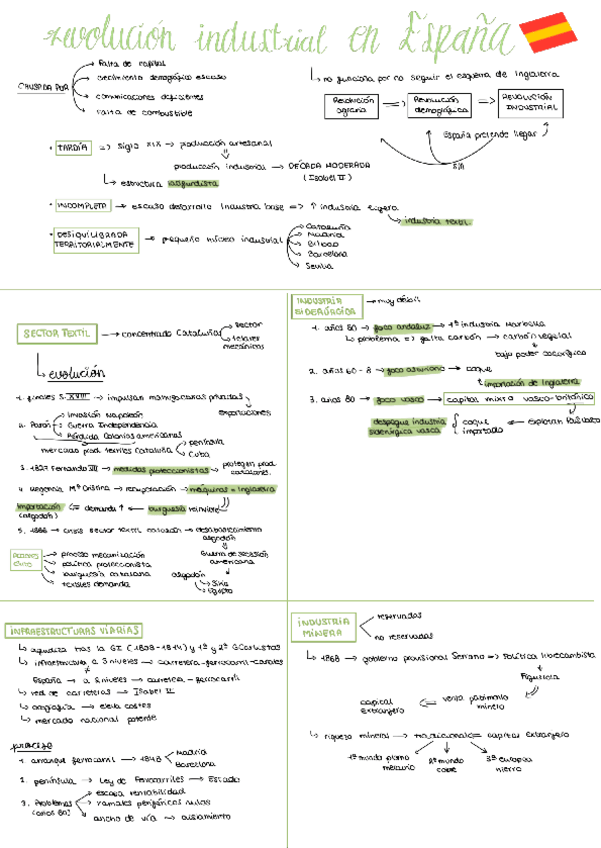 Revolución industrial en España
CAUSADA POR
Falta de capital
crecimiento demográfico escaso
comunicaciones deficientes
Falta de combustible
no funciona por no seguir el esquema de Inglaterra
Revolución agraria => Revolución demográfica => REVOLUCIÓN INDUSTRIAL
España pretende llegar
SIN
· TARDÍA => Siglo XIX → producción artesanal
producción industrial → DÉCADA MODERADA
(Isabel II)
estructura latifundista
· INCOMPLETA → escaso desarrollo industria base => ↑ industria ligera
industria textil
· DESEQUILIBRADA TERRITORIALMENTE → pequeño núcleo industrial
Cataluña
Madrid
Bilbao
Barcelona
Sevilla
SECTOR TEXTIL → concentrado Cataluña
sector
telares mecánicos
evolución
1. finales S. XVIII → impulsan manufacturas privadas
exportaciones
2. Parón
Invasión Napoleón
Guerra Independencia
Pérdida colonias americanas
mercado prod. textiles Cataluña
península
Cuba
3. 1827 Fernando VII → medidas proteccionistas → protegen prod. catalanes.
4. Regencia Mª Cristina → recuperación → máquinas = Inglaterra
importación <= demanda ↑ ← burguesía reinvierte
(algodón)
5. 1866 → crisis sector textil catalán → desabastecimiento algodón
Guerra de secesión americana
algodón
Siria
Egipto
proceso mecanización
política proteccionista
burguesía catalana
textiles demanda
INDUSTRIA SIDERÚRGICA → muy débil
1. años 30 → foco andaluz → 1ª industria Marbella
problema => falta carbón → carbón vegetal
bajo poder calorífico
2. años 60 - 8 → foco asturiano → coque
importación de Inglaterra
3. años 80 → foco vasco → capital mixto vasco-británico
despegue industria siderúrgica vasca
coque importado
exportan
INFRAESTRUCTURAS VIARIAS
agudiza tras la GI (1808-1814) y 1ª y 2ª G Carlistas
infraestructura a 3 niveles → carretera-ferrocarril-canales
España → a 2 niveles → carretera - ferrocarril
red de carreteras → Isabel II
orografía → eleva costes
mercado nacional potente
proceso
1. arranque ferrocarril → 1848
Madrid
Barcelona
2. península → Ley de Ferrocarriles → Estado
3. Problemas
(años 60)
escasa rentabilidad
ramales periféricos nulos
ancho de vía → aislamiento
INDUSTRIA MINERA
reservadas
no reservadas
1868 → gobierno provisional Serrano => Política librecambista
Figuerola
capital extranjero <= venta patrimonio minero
riqueza mineral → tradicional <= capital extranjero
1º mundo plomo mercurio
2º mundo cobre
3º europeo hierro